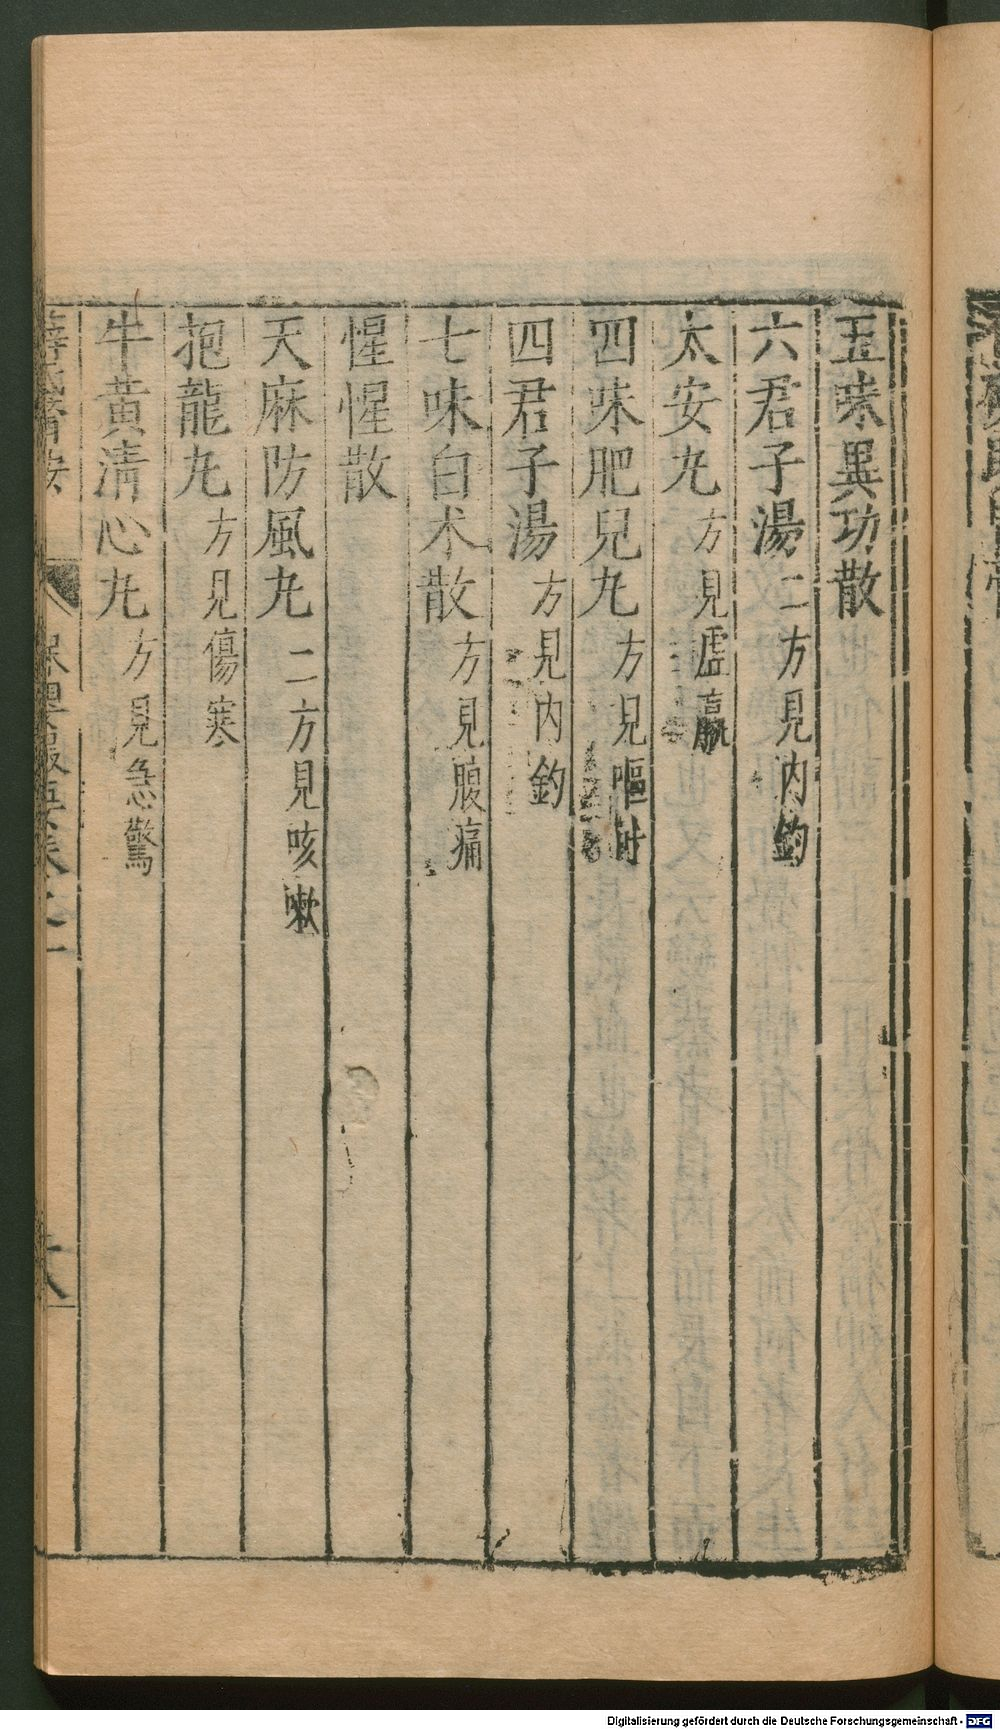 五味異功散
六君子湯 二方見内釣
太安丸 方見虛羸
四味肥兒丸 方見嘔吐
四君子湯 方見内釣
七味白术散 方見腹痛
惺惺散
天麻防風丸 二方見咳嗽
抱龍丸 方見傷寒
牛黃清心丸 方見急驚
Digitalisierung gefördert durch die Deutsche Forschungsgemeinschaft - DFG